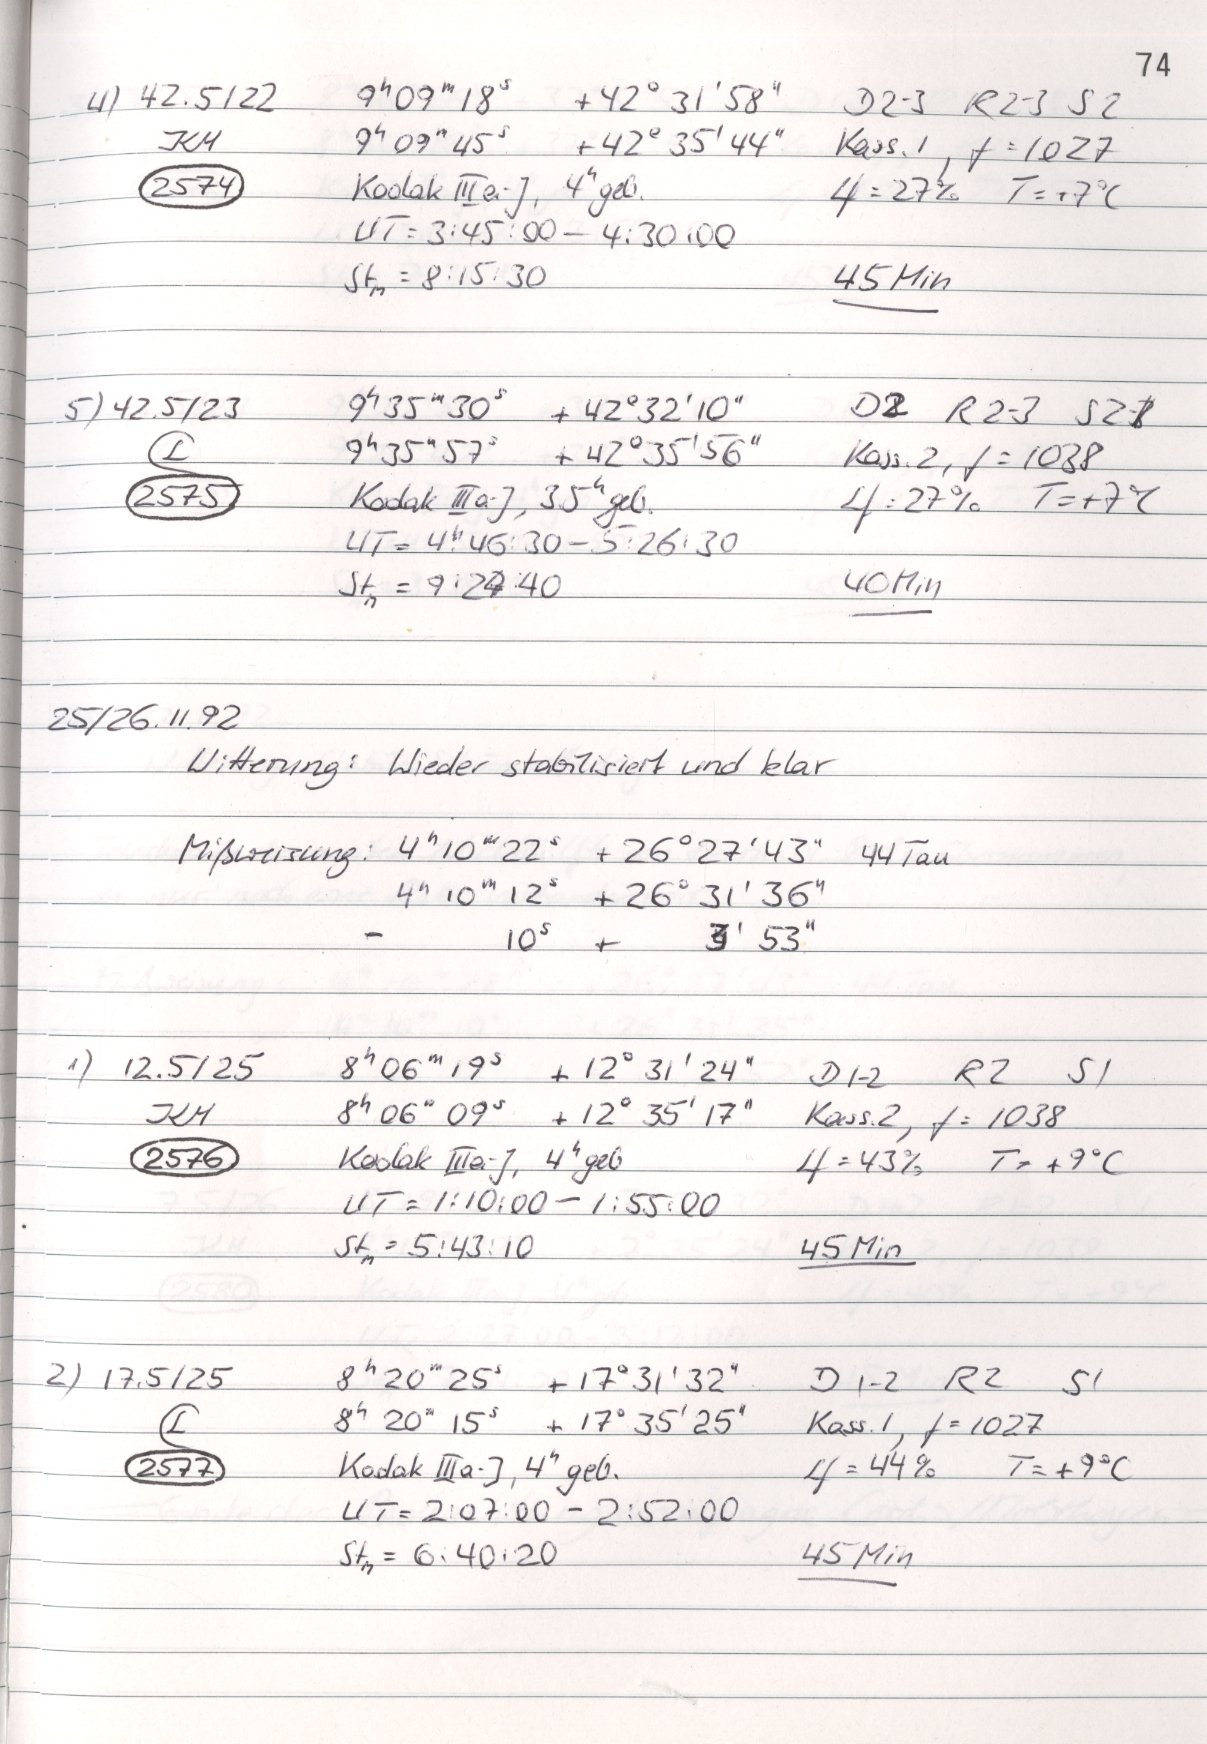 74
4) 42.5/22 9ʰ09ᵐ18ˢ +42°31'58" D2-3 R2-3 S2
KM 9ʰ09ᵐ45ˢ +42°35'44" Kass.1, f=1027
2574 Kodak IIIa-J, 4ʰ geb. φ=27% T=+7°C
UT=3:45:00–4:30:00
Stₘ = 8:15:30 45 Min
5) 42.5/23 9ʰ35ᵐ30ˢ +42°32'10" D2 R2-3 S2-1
L 9ʰ35ᵐ57ˢ +42°35'56" Kass.2, f=1038
2575 Kodak IIIa-J, 3.5ʰ geb. φ=27% T=+7°C
UT=4ʰ46:30–5:26:30
Stₘ = 9:24:40 40 Min
25/26.11.92
Witterung: Wieder stabilisiert und klar
Mißweisung: 4ʰ10ᵐ22ˢ +26°27'43" 44 Tau
4ʰ10ᵐ12ˢ +26°31'36"
- 10ˢ + 3'53"
1) 12.5/25 8ʰ06ᵐ19ˢ +12°31'24" D1-2 R2 S1
KM 8ʰ06ᵐ09ˢ +12°35'17" Kass.2, f=1038
2576 Kodak IIIa-J, 4ʰ geb φ=43% T=+9°C
UT=1:10:00–1:55:00
Stₘ = 5:43:10 45 Min
2) 17.5/25 8ʰ20ᵐ25ˢ +17°31'32" D1-2 R2 S1
L 8ʰ20ᵐ15ˢ +17°35'25" Kass.1, f=1027
2577 Kodak IIIa-J, 4ʰ geb. φ=44% T=+9°C
UT=2:07:00–2:52:00
Stₘ = 6:40:20 45 Min